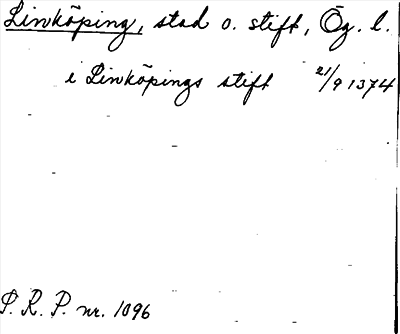 Linköping, stad o. stift, Ög. l.
i Linköpings stift 21/9 1374
P. R. P. nr. 1096